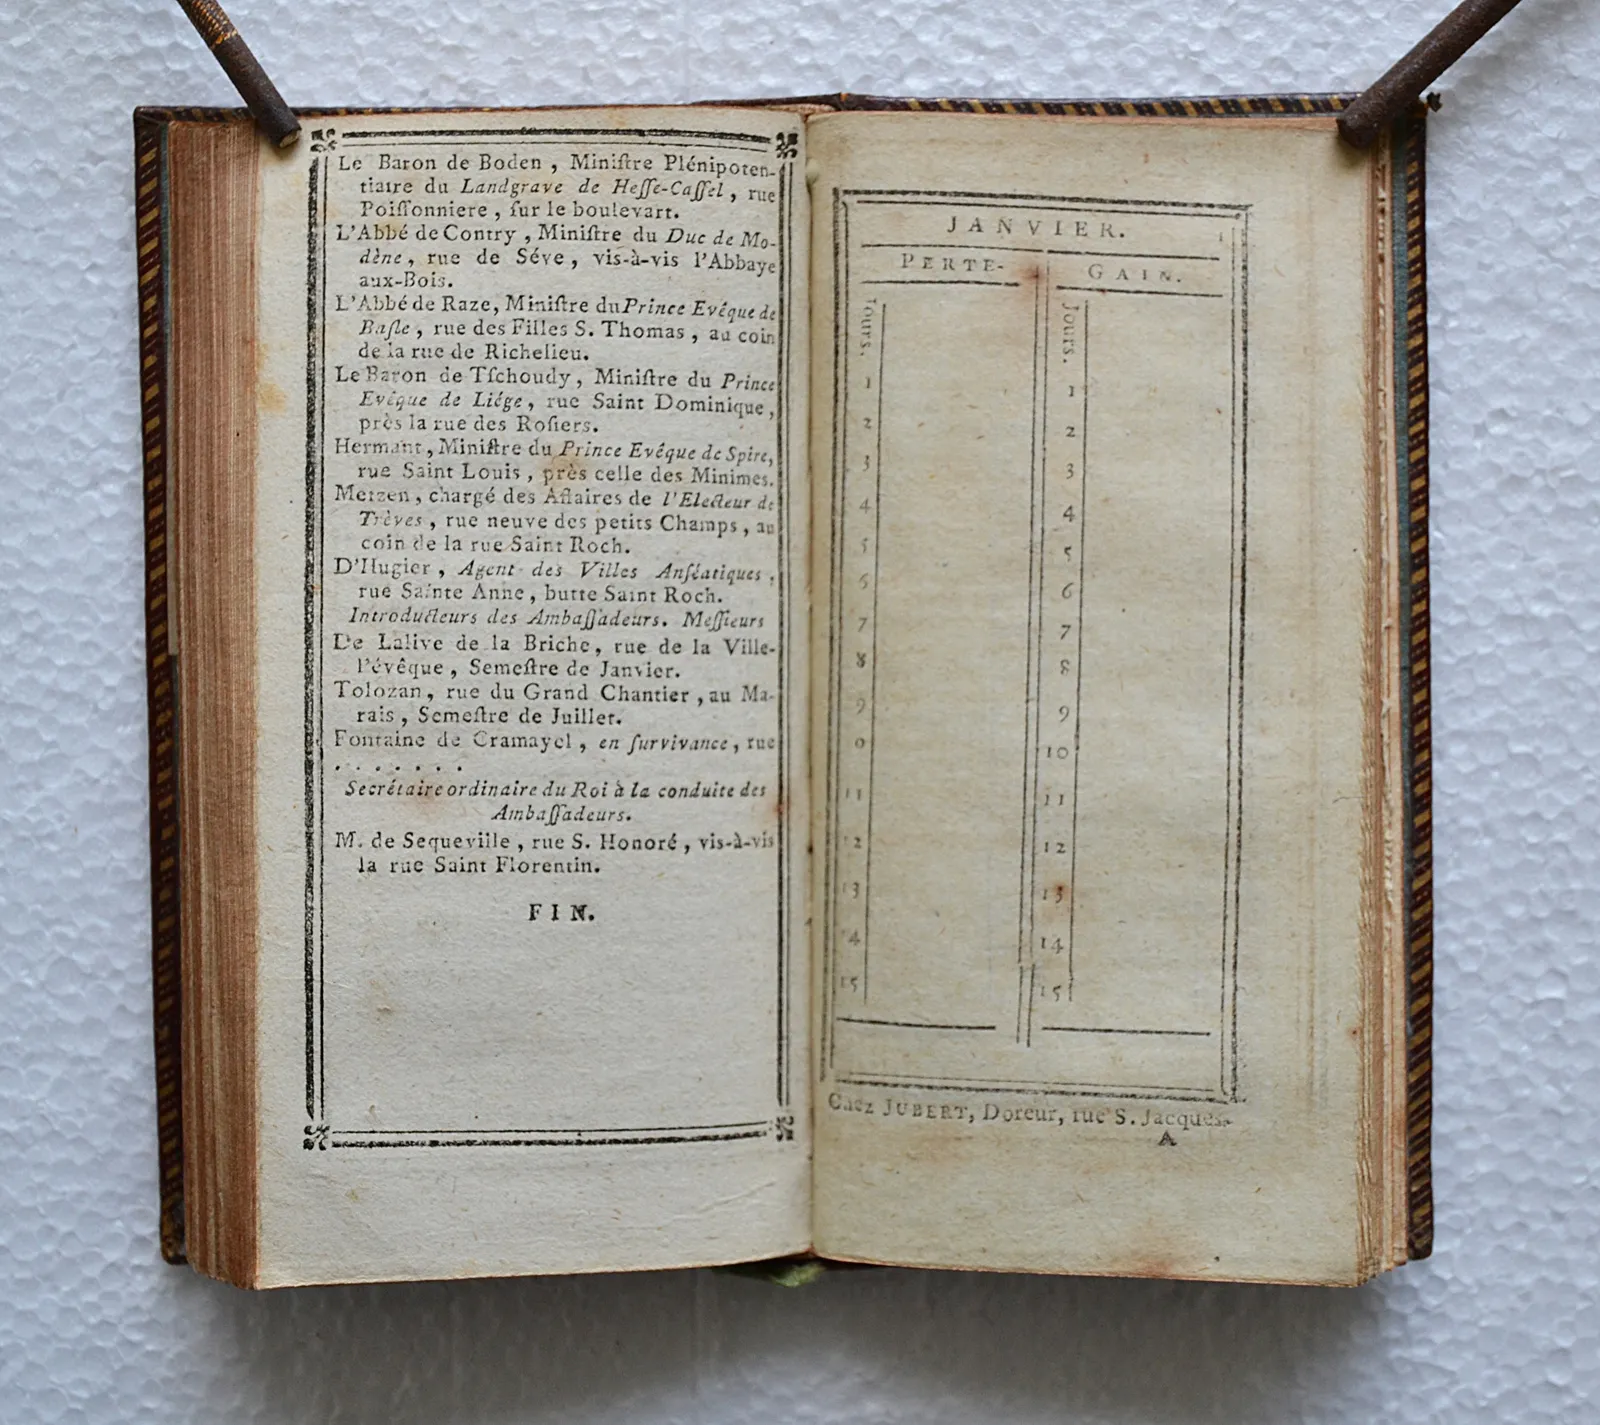 Le Baron de Boden , Miniſtre Plénipoten-
tiaire du Landgrave de Heſſe-Caſſel , rue
Poiſſonniere , ſur le boulevart.
L'Abbé de Contry , Miniſtre du Duc de Mo-
dène , rue de Séve , vis-à-vis l'Abbaye
aux-Bois.
L'Abbé de Raze, Miniſtre du Prince Evêque de
Baſle , rue des Filles S. Thomas , au coin
de la rue de Richelieu.
Le Baron de Tſchoudy , Miniſtre du Prince
Evêque de Liége , rue Saint Dominique ,
près la rue des Roſiers.
Hermant , Miniſtre du Prince Evêque de Spire,
rue Saint Louis , près celle des Minimes.
Metzen , chargé des Affaires de l'Electeur de
Trèves , rue neuve des petits Champs , au
coin de la rue Saint Roch.
D'Hugier , Agent des Villes Anſéatiques ,
rue Sainte Anne , butte Saint Roch.
Introducteurs des Ambaſſadeurs. Meſſieurs
De Lalive de la Briche , rue de la Ville-
l'évêque , Semeſtre de Janvier.
Tolozan , rue du Grand Chantier , au Ma-
rais , Semeſtre de Juillet.
Fontaine de Cramayel , en ſurvivance , rue
. . . . . . .
Secrétaire ordinaire du Roi à la conduite des
Ambaſſadeurs.
M. de Sequeville , rue S. Honoré , vis-à-vis
la rue Saint Florentin.
FIN.
JANVIER. 1
PERTE. GAIN.
Jours. Jours.
1 1
2 2
3 3
4 4
5 5
6 6
7 7
8 8
9 9
0 10
11 11
12 12
13 13
14 14
15 15
Chez JUBERT, Doreur, rue S. Jacques.
A